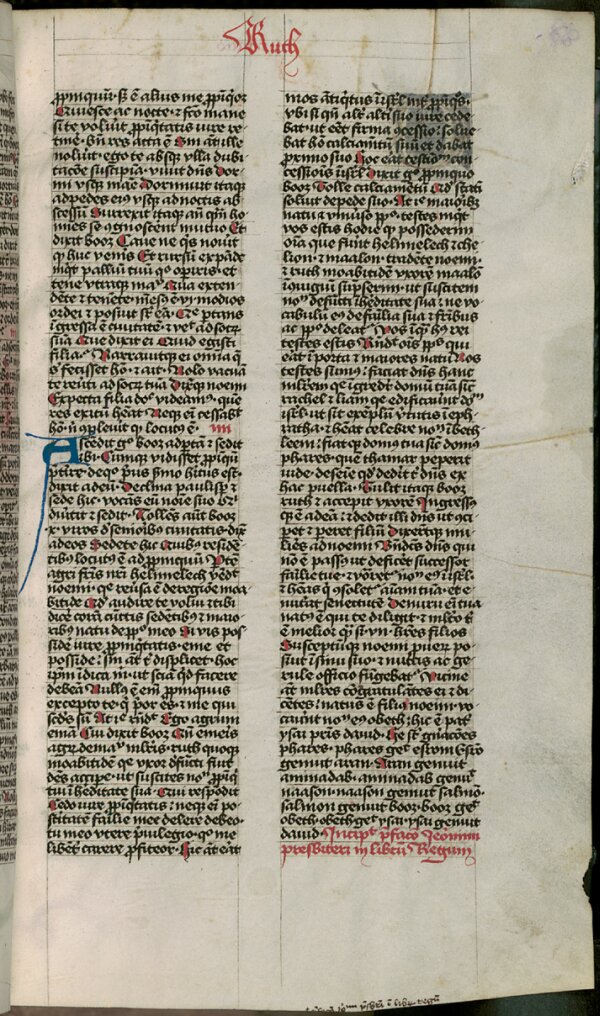 Ruth
ꝓpinquū· sꝫ ē alius me ꝓpīq̄or
Quiesce ac nocte· ⁊ fc̄o mane
si te voluīt ꝓpīq̄tatis iure re
tinē· bn̄ res acta ē Sin āt ille
noluīt· ego te absqꝫ vlla dubi
tacōe suscipiā· viuit dn̄s Dor
mi vsqꝫ mane Dormiuit itaqꝫ
ad pedes eiꝰ vsqꝫ ad noctis ab
scessū Surrexit itaqꝫ an̄ qm̄ ho
mies se ꝯgnoscent mutuo Et
dixit booz Caue ne qͥs nouīt
qꝫ huc venis Et rursū expāde
inqͥt palliū tuū qͦ operiris· et
tene vtraqꝫ manu Qua exten
dēte ⁊ tenēte· mēsꝰ ē vi modios
ordei ⁊ posuit sr̄ eā· Que portans
īgressa ē ciuitatē· ⁊ vēt ad socrū
suā Que dixit ei Quid egisti
filia· Narrauitqꝫ ei omīa q̄
sꝫ fecisset hō· ⁊ ait· Nolo vacuā
te reuti ad socrū tuā Dixitqꝫ noemi
Expecta filia donec videamꝰ· que
res exitū heāt· Neqꝫ ei cessabit
hō· nͥ ꝯpleuīt qꝫ locutꝰ ē· iiii
Ascēdit gͦ booz ad portā ⁊ sedit
ibi· Cumqꝫ vidisset ꝓpīquū
ptīre· de qͦ prius sermo hitus est·
dixit ad eū· Declina paulisꝑ ⁊
sede hic· vocās eū noīe suo Qui
diuītit ⁊ sedit· Tollēs aūt booz
x· viros de seniorībꝰ ciuitatis· dixit
ad eos Sedete hic Quibꝰ residē
tibꝰ locutꝰ ē ad ꝓpinquū Ptē
agri fris nr̄i helimelech vēdet
noemi· que reūsa ē de regiōe moa
bitide Qd audire te volui ⁊ tibi
dicē corā cūctis sedētibꝰ ⁊ maio
ribꝰ natu de pplo meo Si vis pos
sidē iure ꝓpinq̄tatis· eme et
posside· sin āt tͥ displicet· hoc
ip̄m īdica mͥ· ut sciā qd facere
debeā Nullꝰ ē eīm ꝓpinquus
excepto te· qͥ prior es· ⁊ me qui
scd̄s sū At ille rn̄dit Ego agrum
emā Cui dixit booz Qn̄ emeis
agrū de manu mlieris· ruth quoqꝫ
moabitidē que vxor defūcti fuit
debes accipe· ut suscites nomen ꝓpīqͥ
tui ī hēditate sua Qui respōdit
Cedo iure ꝓpīq̄tatis· neqꝫ eī po
steritatē failie mee delere debeo·
tu meo vtere pͥuilegio· qͦ me
libēter carere ꝓfiteor· Hic āt erāt
mos ātiqͥtus ī isrl̄ int̄ ꝓpīqͦs·
ut si qn̄ alt̄ alt̄i suo iure cede
bat· ut eēt firma ꝯcessio· solue
bat hō calciamtū suū et dabat
proximo suo Hoc erat testimoniū con
cessiōis ī isrl̄ Dixit gͦ ꝓpinquo
booz Tolle calciamētū Qd statī
soluit de pede suo· At ille maioribꝫ
natu ⁊ vniūso pplo· testes inqͥt
vos estis hodie qꝫ possederim
oīa que fuīt helimelech ⁊ che
lion· ⁊ maalon· tradēte noemi·
⁊ ruth moabitidē vxorē maalō
ī ꝯiugiū supserim· ut suscitem
nomen defūcti ī hēditate sua· ⁊ ne vo
cabulū eiꝰ de failia sua ⁊ fr̄ibus
ac pplo deleat· Vos īqͣ hꝰ rei
testes estis Rn̄dit oīs pplus qui
erāt ī porta ⁊ maiores natu Nos
testes sumꝰ· faciat dn̄s hanc
mlierem que īgredit̄ domū tuā sic
rachel ⁊ liam que edificauīt domū
isrl̄· ut sit exeplū v̄tutis ī eph
ratha· ⁊ hēat celebre nomen ī beth
leem· fiatqꝫ domꝰ tua sic domꝰ
phares· quē thamar peperit
iude· de semīe qd dedīt tͥ dn̄s ex
hac puella· Tulit itaqꝫ booz
ruth ⁊ accepit vxorē Ingressꝰ
qꝫ ē ad eā· ⁊ dedit illi dn̄s ut ꝯci
pet ⁊ peret filiū Dixerūtqꝫ mu
lieres ad noemi· Bn̄dictꝰ dn̄s qui
nō ē passus ut deficet successor
failie tue· ⁊ vocret nomen eiꝰ ī isrl̄·
⁊ hēas qͥ ꝯsolet̄ aīam tuā· et e
nutiat senectutē De nuru eīm tua
natꝰ ē que te diligit· ⁊ mlto tͥ
ē melior qͣ si· vii· hrēs filios
Susceptūqꝫ noemi puerū po
suit ī sinu suo· ⁊ nutricis ac ge
rule officio fūgebat̄· Vicine
āt mlieres cōgratulātes ei ⁊ di
cētes· natus ē filiꝰ noemi· vo
cauīt nomen eiꝰ obeth· hic ē pat̄
ysai pris dauid· He st̄ gn̄acōes
phares· phares geīt esrom Esrō
genuit aran· Aran genuit
aminadab· aminadab genuit
naason· naason genuit salmō·
salmon genuit booz· booz geīt
obeth· obeth geīt ysai· ysai genuit
dauid Incipit p̄facō Jeronimi
presbiteri in librū Regum